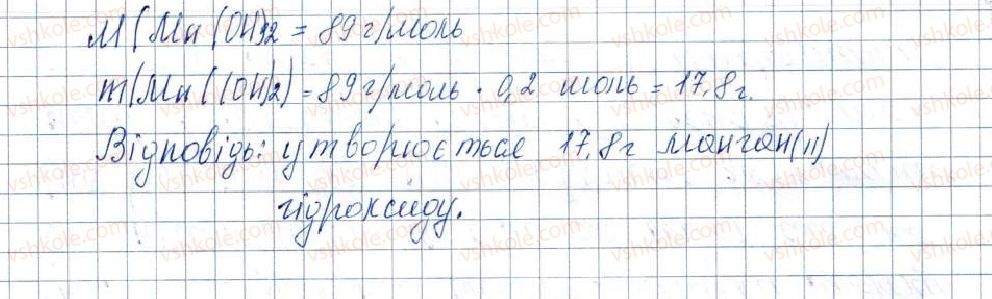 M(Mn(OH)2 = 89 г/моль
m(Mn((OH)2) = 89 г/моль · 0,2 моль = 17,8 г.
Відповідь: утворюється 17,8 г манган(II)
гідроксиду.